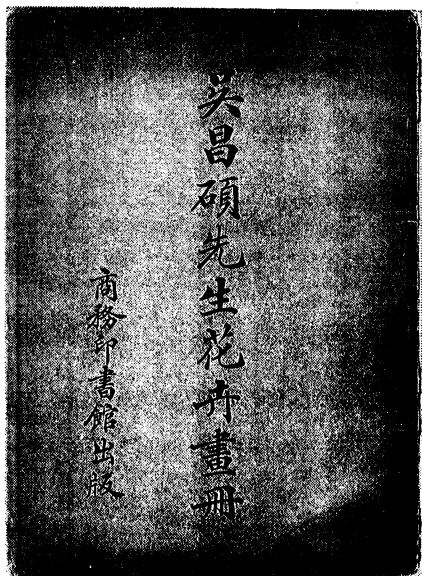 吳昌碩先生花卉畫冊
商務印書館出版